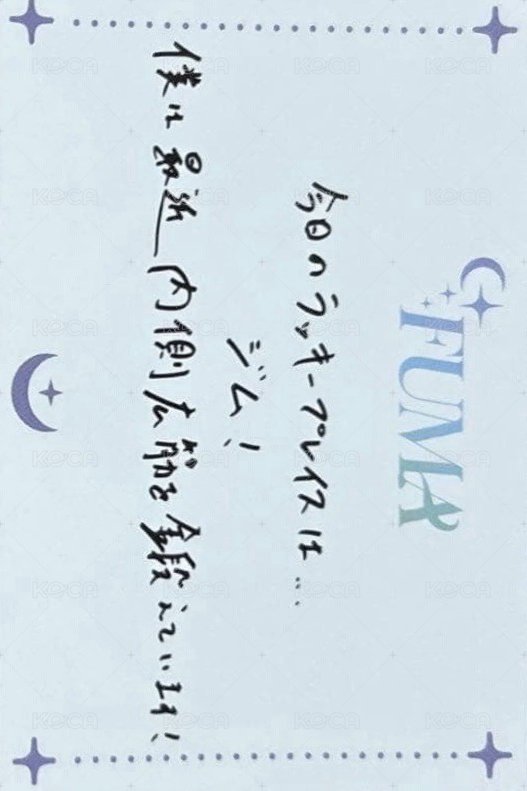 FUMA
今日のラッキープレイスは...
ジム！
僕は最近内側広筋を鍛えています！
KOCA